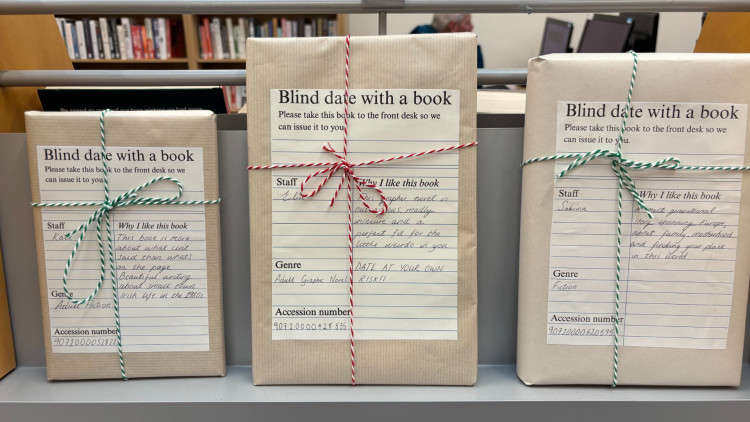 Blind date with a book
Please take this book to the front desk so we
can issue it to you.
Staff
Kate
Why I like this book
This book is more
about what isnt
said than what's
on the page.
Beautiful writing
about small town
Irish life in the 1980s
Genre
Adult Fiction
Accession number
Blind date with a book
Please take this book to the front desk so we
can issue it to you.
Staff
Why I like this book
This graphic novel is
madly
insecure and a
perfect fit for the
little weirdo in you
DATE AT YOUR OWN
RISK!!
Genre
Adult Graphic Novel
Accession number
Blind date with a book
Please take this book to the front desk so we
can issue it to you.
Staff
Sabina
Why I like this book
A multi generational
story spanning Europe,
about family, motherhood
and finding your place
in this world.
Genre
Fiction
Accession number